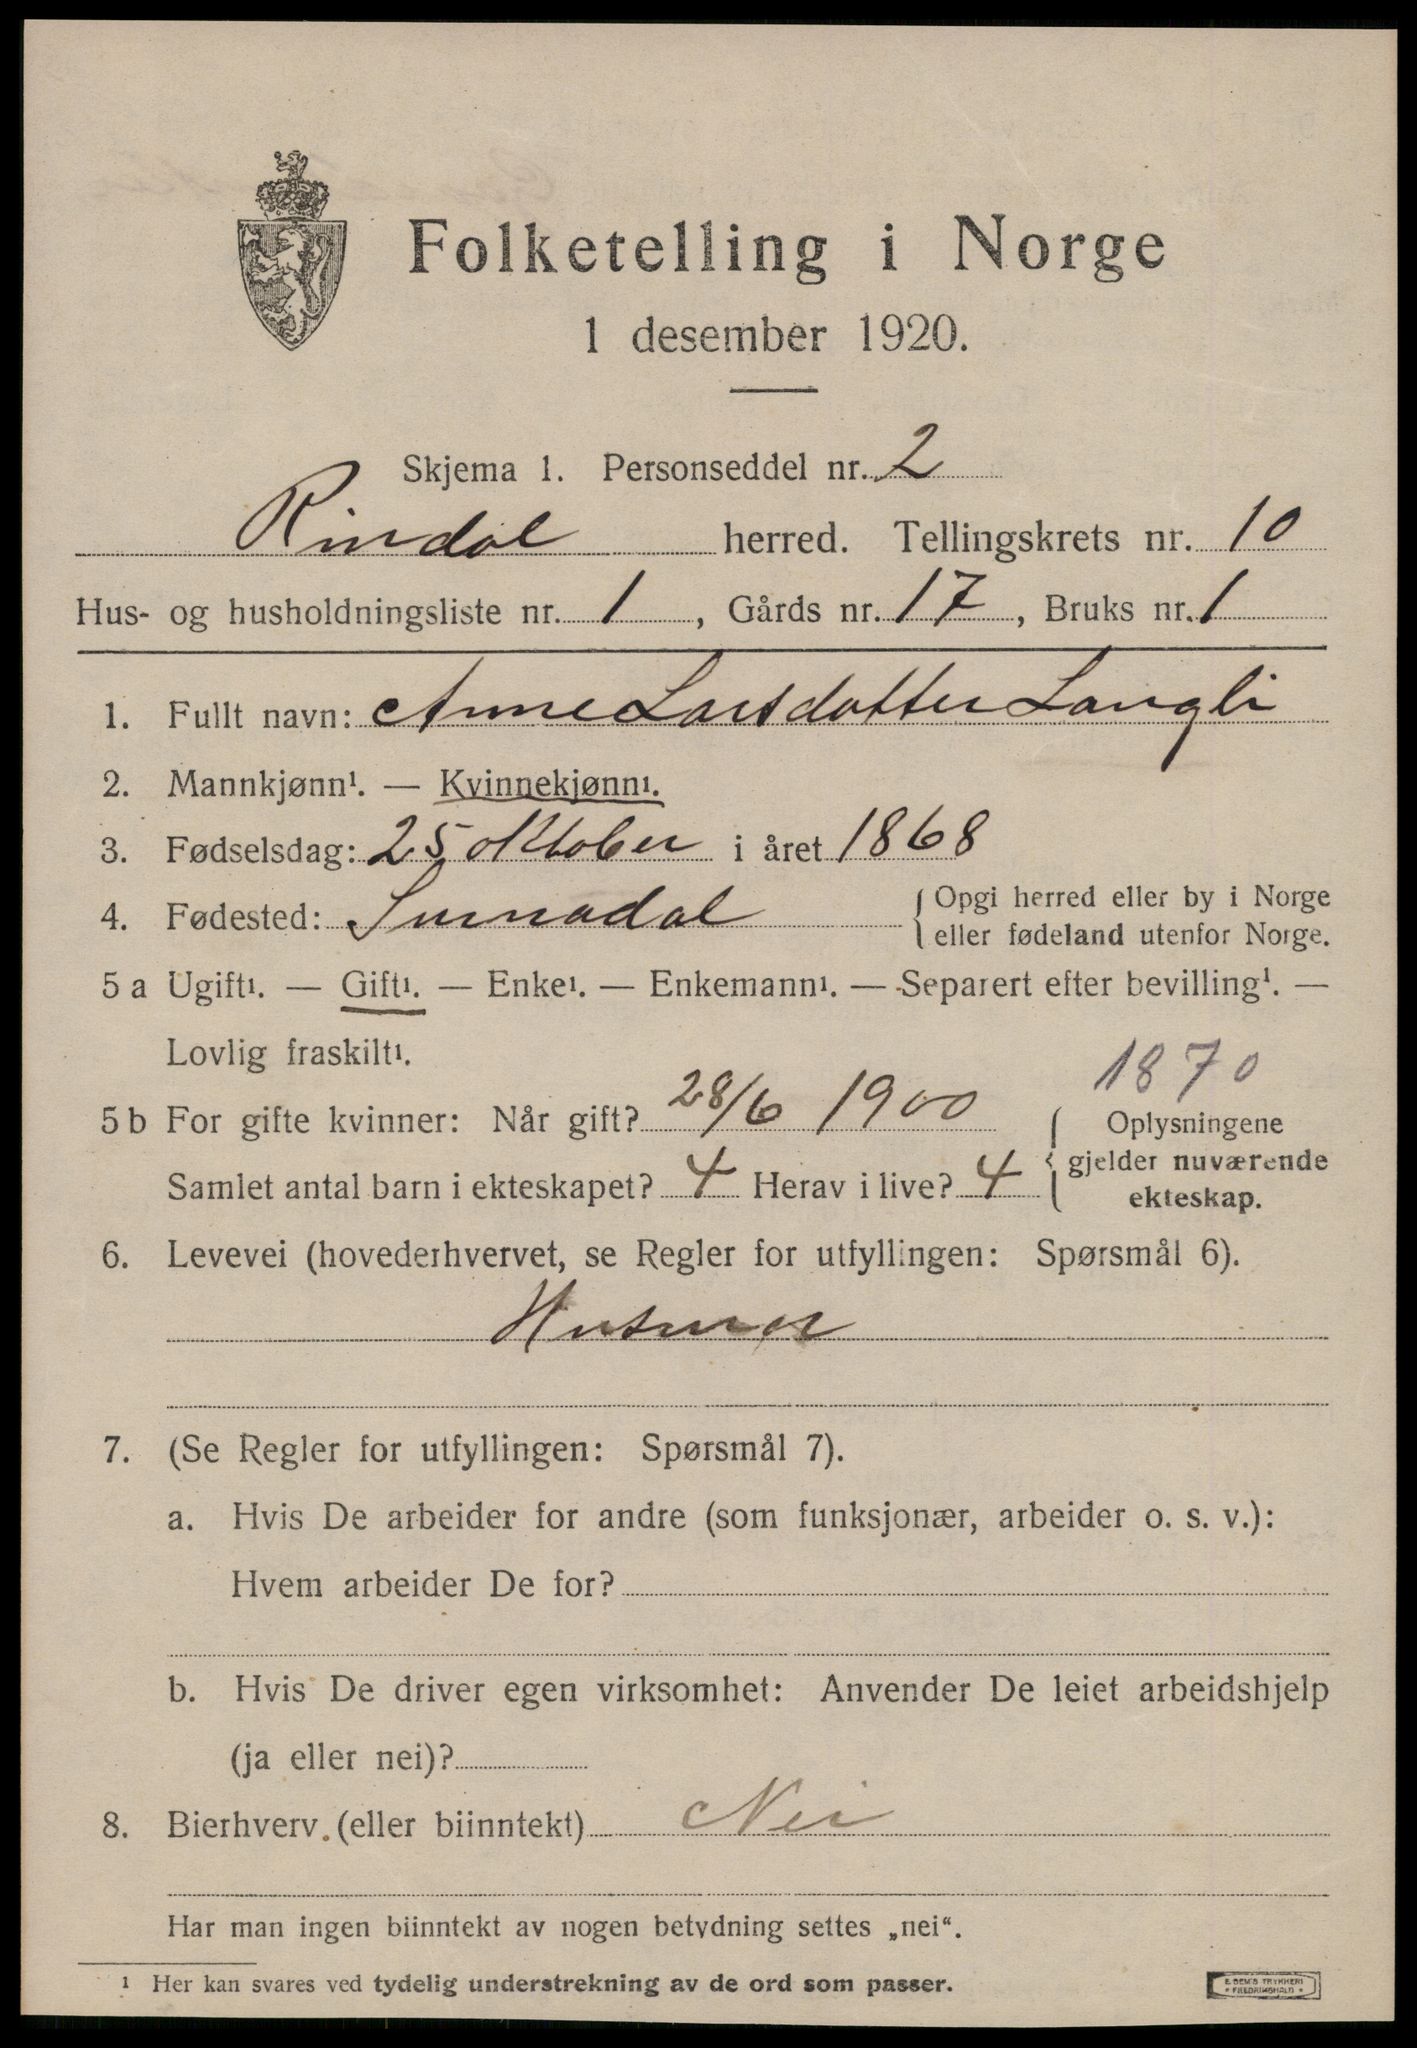 Folketelling i Norge
1 desember 1920.
Skjema 1. Personseddel nr. 2
Rindal herred. Tellingskrets nr. 10
Hus- og husholdningsliste nr. 1, Gårds nr. 17, Bruks nr. 1
1. Fullt navn: Anne Larsdatter Langli
2. Mannkjønn¹. — Kvinnekjønn¹.
3. Fødselsdag: 25 oktober i året 1868
4. Fødested: Surnadal { Opgi herred eller by i Norge
eller fødeland utenfor Norge.
5 a Ugift¹. — Gift¹. — Enke¹. — Enkemann¹. — Separert efter bevilling¹. —
Lovlig fraskilt¹.
1870
5 b For gifte kvinner: Når gift? 28/6 1900 { Oplysningene
Samlet antal barn i ekteskapet? 4 Herav i live? 4 gjelder nuværende
ekteskap.
6. Levevei (hovederhvervet, se Regler for utfyllingen: Spørsmål 6).
Husmor
7. (Se Regler for utfyllingen: Spørsmål 7).
a. Hvis De arbeider for andre (som funksjonær, arbeider o. s. v.):
Hvem arbeider De for?
b. Hvis De driver egen virksomhet: Anvender De leiet arbeidshjelp
(ja eller nei)?
8. Bierhverv (eller biinntekt) Nei
Har man ingen biinntekt av nogen betydning settes „nei“.
¹ Her kan svares ved tydelig understrekning av de ord som passer.
E. SEM'S TRYKKERI
* FREDRIKSHALD *